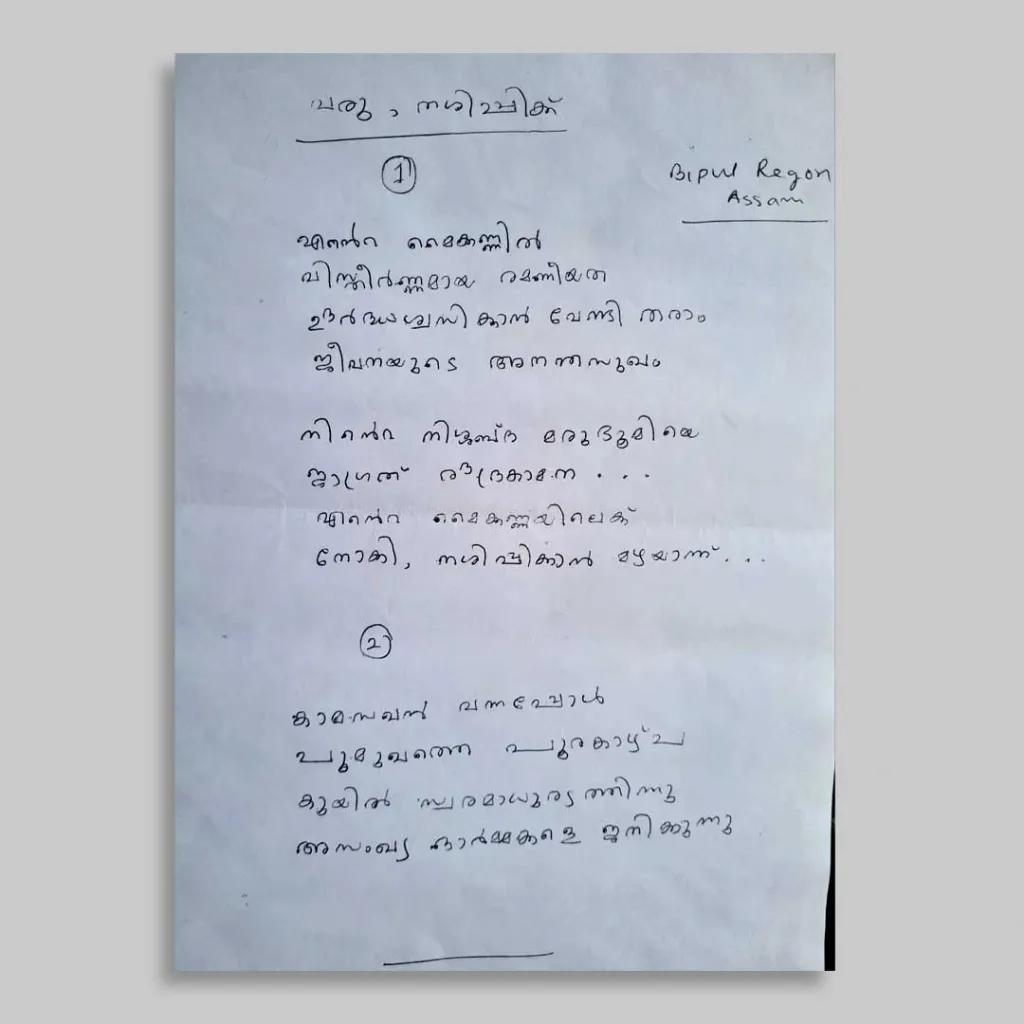 വരൂ, നശിപ്പിക്ക്
1
Bipul Regon
Assam
എൻെറ മൈകണ്ണിൽ
വിസ്തീർണ്ണമായ രമണീയത
ഊർദ്ധശ്വസിക്കാൻ വേണ്ടി തരാം
ജീവനയുടെ അനന്തസുഖം
നിൻെറ നിശബ്ദ മരുഭൂമിയെ
ജാഗ്രത് രൗദ്രകാമന ...
എൻെറ മൈകണ്ണയിലെക്
നോകി, നശിപ്പിക്കാൻ മഴയാണ് ...
2
കാമസഖൻ വന്നപ്പോൾ
പൂമുഖത്തെ പൂരകാഴ്ച
കുയിൽ സ്വരമാധുര്യത്തിന്നു
അസംഖ്യ ഓർമ്മകളെ ജനിക്കുന്നു